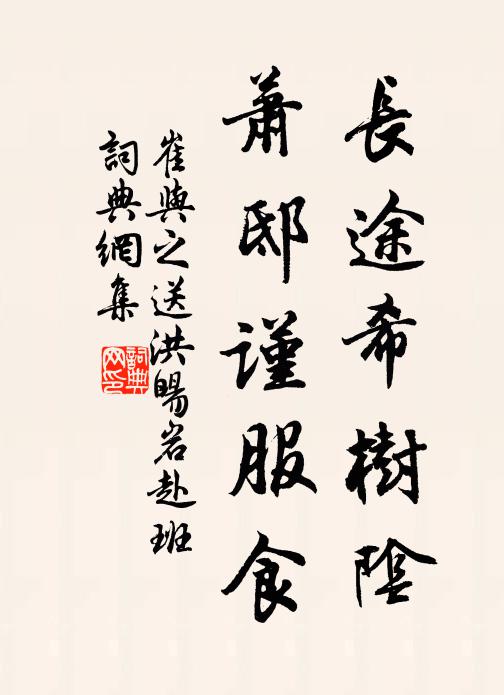 長途希樹陰
蕭邸謹服食
崔與之送洪暘岩赴班
詞典網集
詞典網印